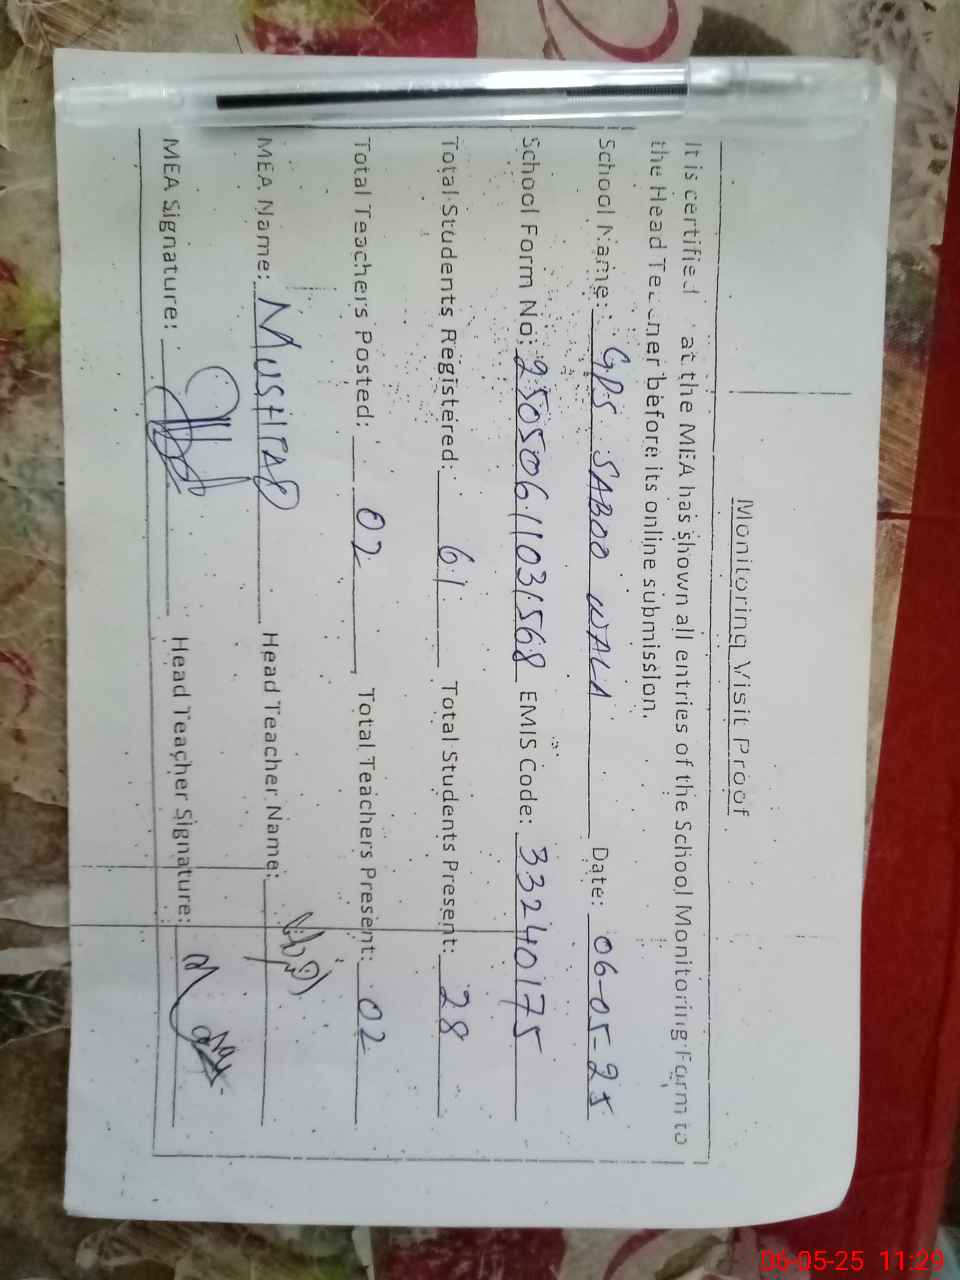 Monitoring Visit Proof
It is certified at the MEA has shown all entries of the School Monitoring Form to
the Head Teacher before its online submission.
School Name: GPS SABOO WALA Date: 06-05-25
School Form No: 25050611031568 EMIS Code: 33240175
Total Students Registered: 61 Total Students Present: 28
Total Teachers Posted: 02 Total Teachers Present: 02
MEA Name: MUSHTAQ Head Teacher Name:
MEA Signature: Head Teacher Signature:
06-05-25 11:29